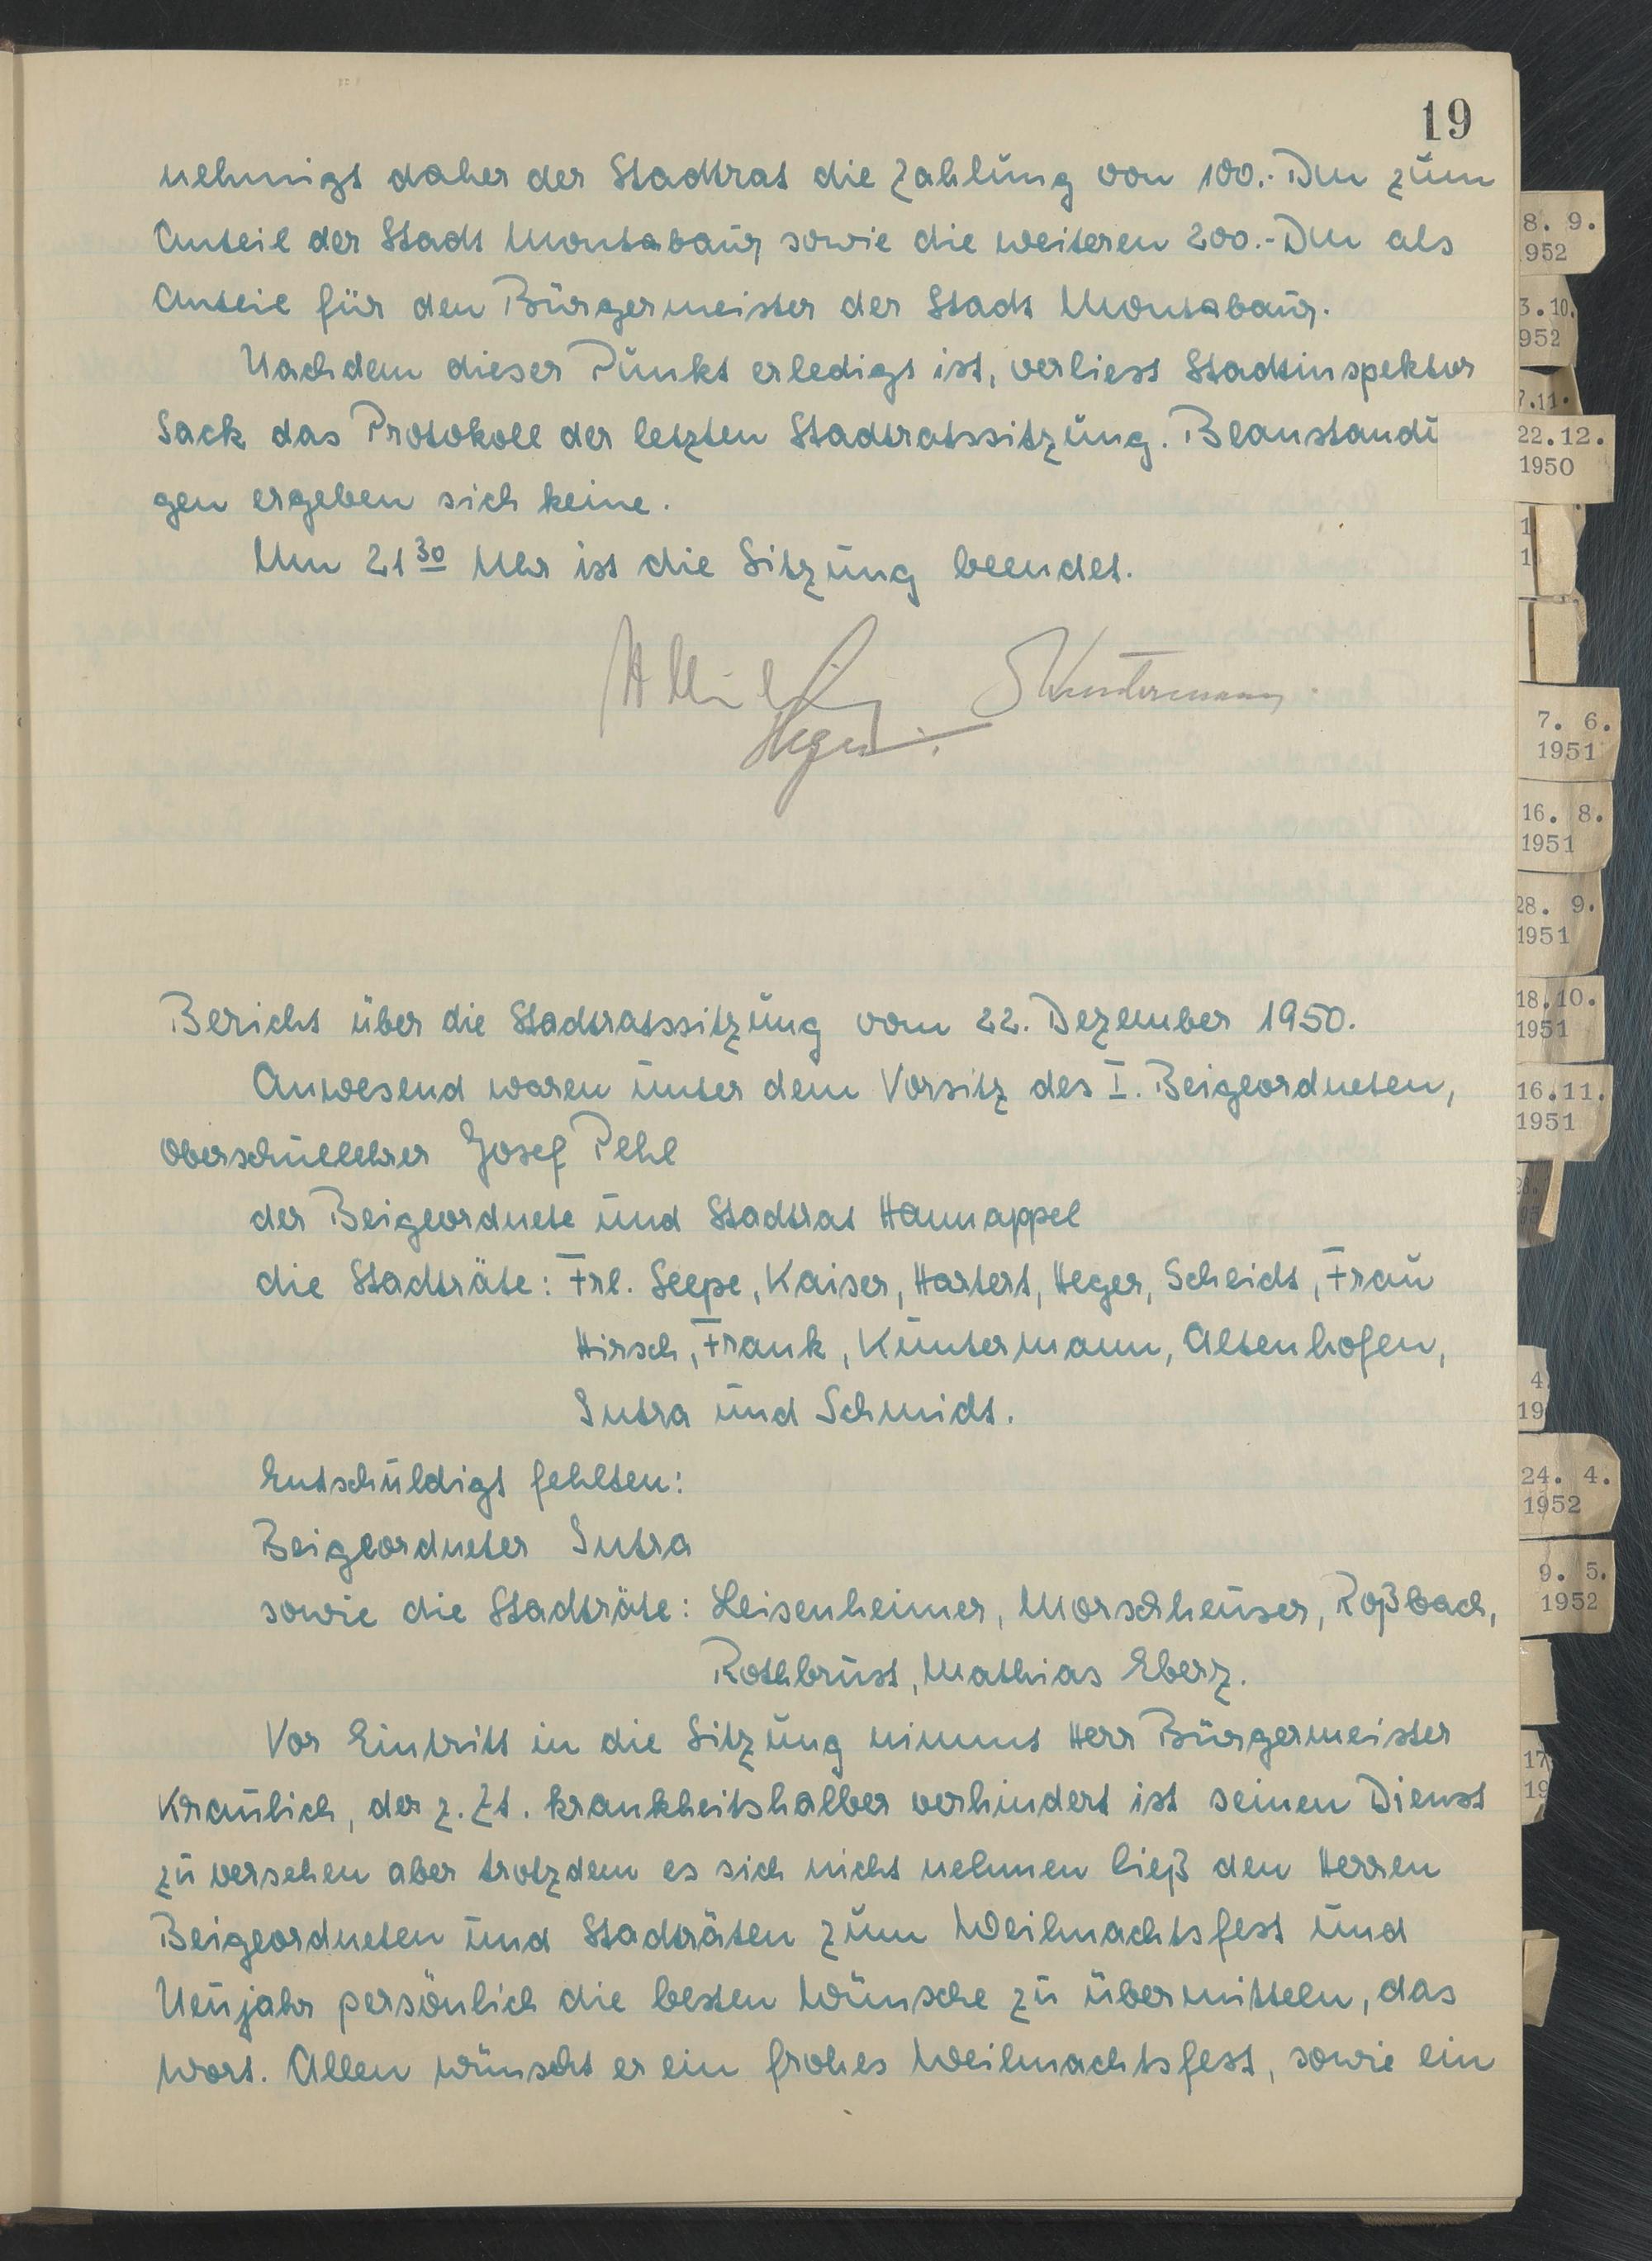 19
nehmigt daher der Stadtrat die Zahlung von 100.- DM zum
Anteil der Stadt Montabaur, sowie die weiteren 200.- DM als
Anteil für den Bürgermeister der Stadt Montabaur.
Nachdem dieser Punkt erledigt ist, verliess Stadtinspektor
Sack das Protokoll der letzten Stadtratssitzung. Beanstandu
gen ergeben sich keine.
Um 21 30 Uhr ist die Sitzung beendet.
Heger Kuntermann.
Bericht über die Stadtratssitzung vom 22. Dezember 1950.
Anwesend waren unter dem Vorsitz des I. Beigeordneten,
Oberschullehrer Josef Pehl
der Beigeordnete und Stadtrat Hannappel
die Stadträte: Frl. Seepe, Kaiser, Hartert, Heger, Scheidt, Frau
Hirsch, Frank, Kuntermann, Altenhofen,
Sutra und Schmidt.
Entschuldigt fehlten:
Beigeordneter Sutra
sowie die Stadträte: Leisenheimer, Morschheuser, Roßbach,
Rothbrust, Mathias Eberz.
Vor Eintritt in die Sitzung nimmt Herr Bürgermeister
Kraulich, der z. Zt. krankheitshalber verhindert ist seinen Dienst
zu versehen aber trotzdem es sich nicht nehmen ließ den Herren
Beigeordneten und Stadträten zum Weihnachtsfest und
Neujahr persönlich die besten Wünsche zu übermitteln, das
Wort. Allen wünscht er ein frohes Weihnachtsfest, sowie ein
8. 9.
1952
3.10.
952
7.11.
22.12.
1950
7. 6.
1951
16. 8.
1951
28. 9.
1951
18.10.
1951
16.11.
1951
4.
19
24. 4.
1952
9. 5.
1952
17
19